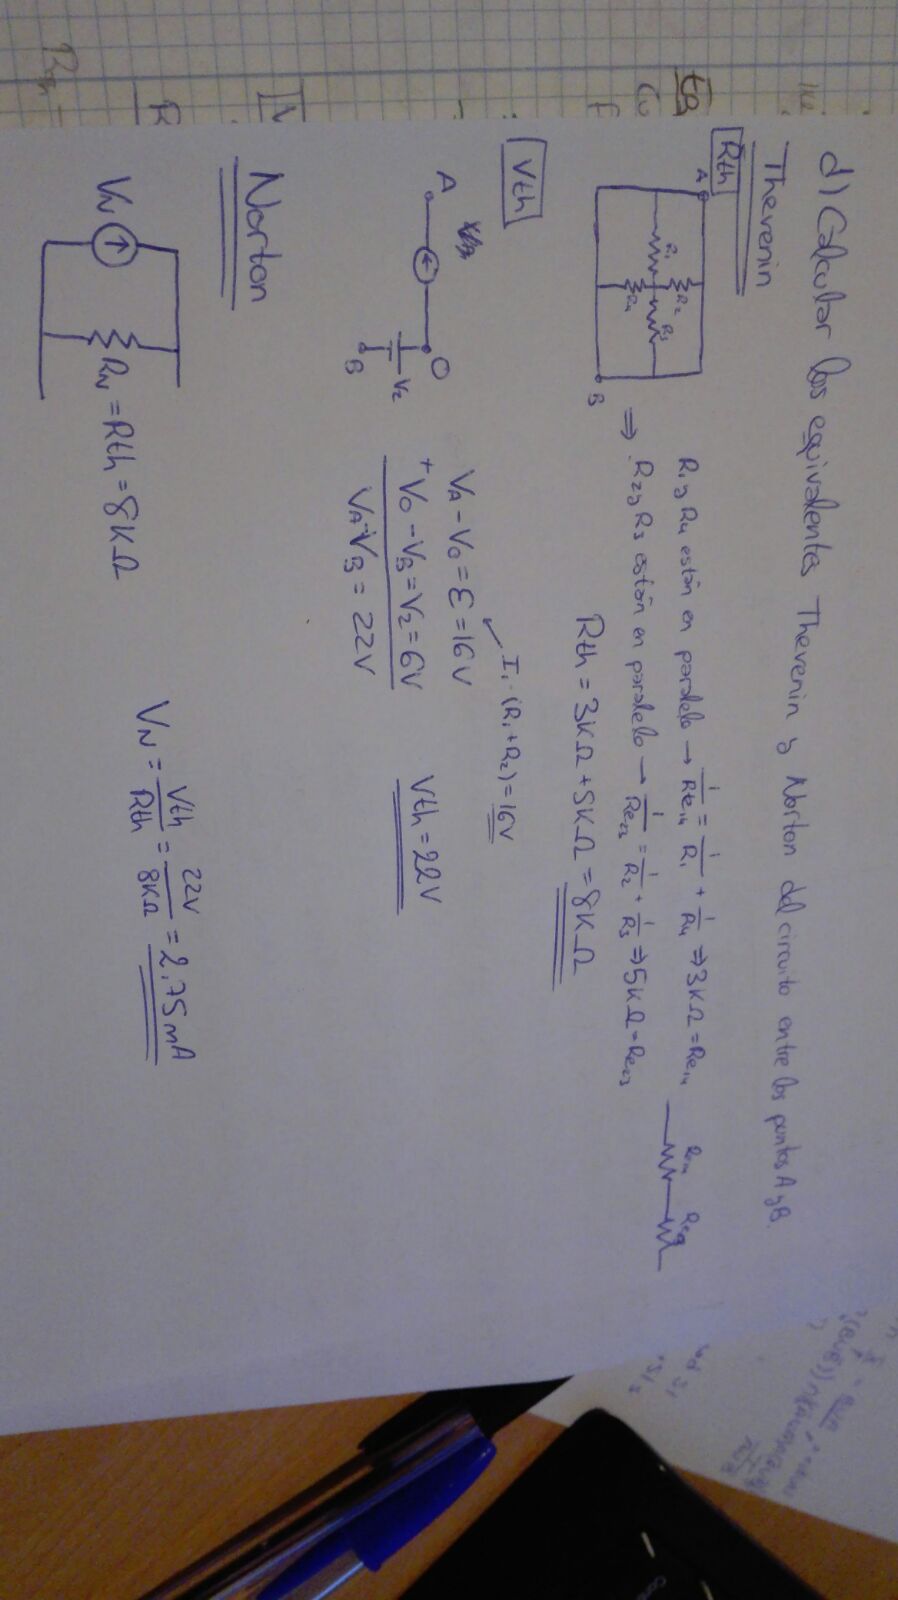 d) Calcular los equivalentes Thevenin y Norton del circuito entre los puntos A y B.
Thevenin
Rth
A
R2
R1
R3
R4
B
R1 y R4 están en paralelo → 1/Re14 = 1/R1 + 1/R4 ⇒ 3KΩ = Re14
⇒ R2 y R3 están en paralelo → 1/Re23 = 1/R2 + 1/R3 ⇒ 5KΩ = Re23
Rth = 3KΩ + 5KΩ = 8KΩ
Vth
I1 · (R1 + R2) = 16V
A
O
V2
B
VA - VO = Ɛ = 16V
+ VO - VB = V2 = 6V
VA - VB = 22V
Vth = 22V
Norton
VN
RN = Rth = 8KΩ
VN = Vth/Rth = 22V/8KΩ = 2,75mA